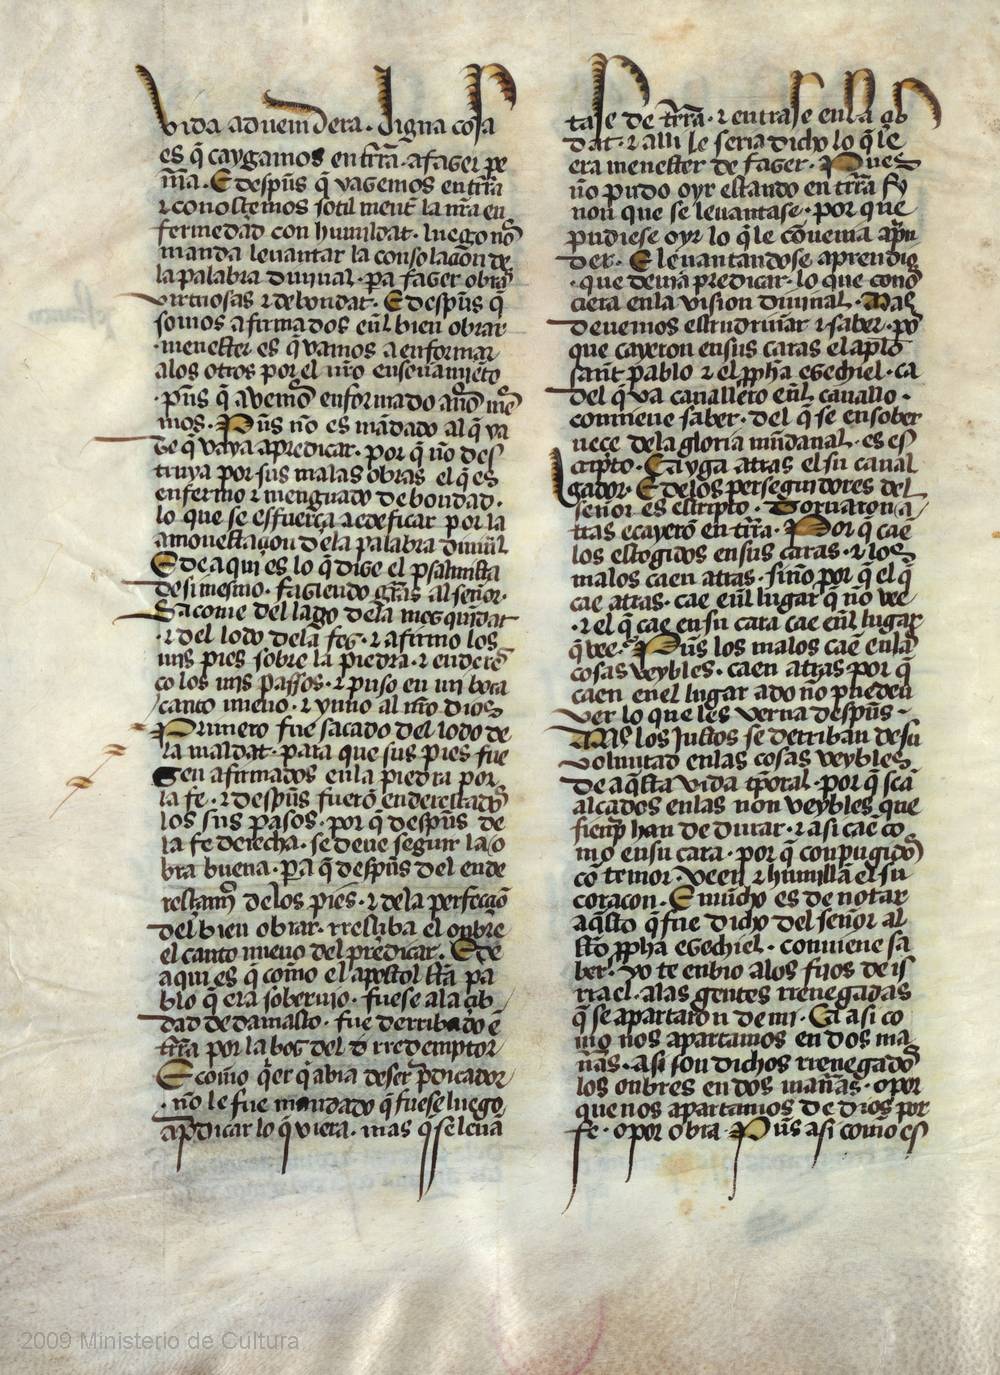 vida aduenidera. digna cosa
es q̃ caygamos en trr̃a. a fazer pe
nĩa. E despũs q̃ yazemos en trr̃a
⁊ conosçemos sotil ment̃ la nr̃a en
fermedad con humildat. luego nõ
manda leuantar la consolaçõn de
la palabra diuinal. pa fazer obras
virtuosas ⁊ de bondat. E despũs q̃
somos afirmados eñl bien obrar
menester es q̃ vamos a enformar
alos otros por el nr̃o enseñamiẽto
pũs q̃ auemõ enformado anõ mẽ
mos. Pũs nõ es mãdado al q̃ ya
ze q̃ vaya apredicar. por q̃ nõ des
truya por sus malas obras el q̃ es
enfermo ⁊ menguado de bondad.
lo que se esfuerça a edeficar por la
amonestaçion dela palabra diuinl̃
E de aqui es lo q̃ dize el psalmista
de si mesmo. faziendo gr̃as al señor.
Sacome del lago dela mezquindat
⁊ del lodo dela fez. ⁊ afirmo los
mis pies sobre la piedra. ⁊ endere
ço los mis passos. ⁊ puso en mi boca
canto nueuo. ⁊ ymno al nr̃o dios
Primero fue sacado del lodo de
la maldat. para que sus pies fue
sen afirmados enla piedra por
la fe. ⁊ despũs fuerõ endereçados
los sus pasos. por q̃ despũs de
la fe derecha. se deue seguir la o
bra buena. pa q̃ despũs del ende
resçamĩo delos pies. ⁊ dela perfecçio
del bien obrar. rresçiba el onbre
el canto nueuo del predicar. E de
aqui es q̃ como el apostol sant pa
blo q̃ era soberuio. fuese ala çib
dad de damasco. fue derribado ẽ
trr̃a por la boz del rredemptor
E como q̃er q̃ abia de ser p̃dicador
nõ le fue mandado q̃ fuese luego
ap̃dicar lo q̃ viera. mas q̃ se leua
tase de trr̃a. ⁊ entrase enla çib
dat. ⁊ alli le seria dicho lo q̃ le
era menester de fazer. Pues
nõ pudo oyr estando en trr̃a sy
non que se leuantase. por que
pudiese oyr lo q̃ le cõuenia apn̄
der. E leuantandose aprendio
que deuia predicar. lo que cono
çiera enla vision diuinal. Mas
deuemos escudriñar ⁊ saber. por
que cayeron en sus caras el aplõ
sant pablo ⁊ el ppha ezechiel. ca
del q̃ va cauallero eñl cauallo.
conuiene saber. del q̃ se ensober
ueçe dela gloria mũdanal. es es
cripto. Cayga atras el su caual
gador. E delos perseguidores del
señor es escripto. Tornaron a
tras e cayerõ en trr̃a. Por q̃ caẽ
los escogidos en sus caras. ⁊ los
malos caen atras. sinõ por q̃ el q̃
cae atras. cae eñl lugar q̃ no vee
⁊ el q̃ cae en su cara cae eñl lugar
q̃ vee. Pũs los malos caẽ enlas
cosas veybles. caen atras por q̃
caen en el lugar ado nõ pueden
ver lo que les verna despũs.
Mas los justos se derriban de su
voluntad enlas cosas veybles
de aq̃sta vida tp̃oral. por q̃ seã
alçados enlas non veybles que
sienp̃ han de durar. ⁊ asi caẽ co
mo en su cara. por q̃ conpugidos
cõ temor. veen ⁊ humillã el su
coraçon. E mucho es de notar
aq̃sto q̃ fue dicho del señor al
sto ppha ezechiel. conuiene sa
ber. yo te enbio alos fijos de is
rrael. alas gentes rrenegadas
q̃ se apartaron de mi. Ca asi co
mo nos apartamos en dos ma
ñas. asi son dichos rrenegados
los onbres en dos mañas. o por
que nos apartamos de dios por
fe. o por obra. Pũs asi como es